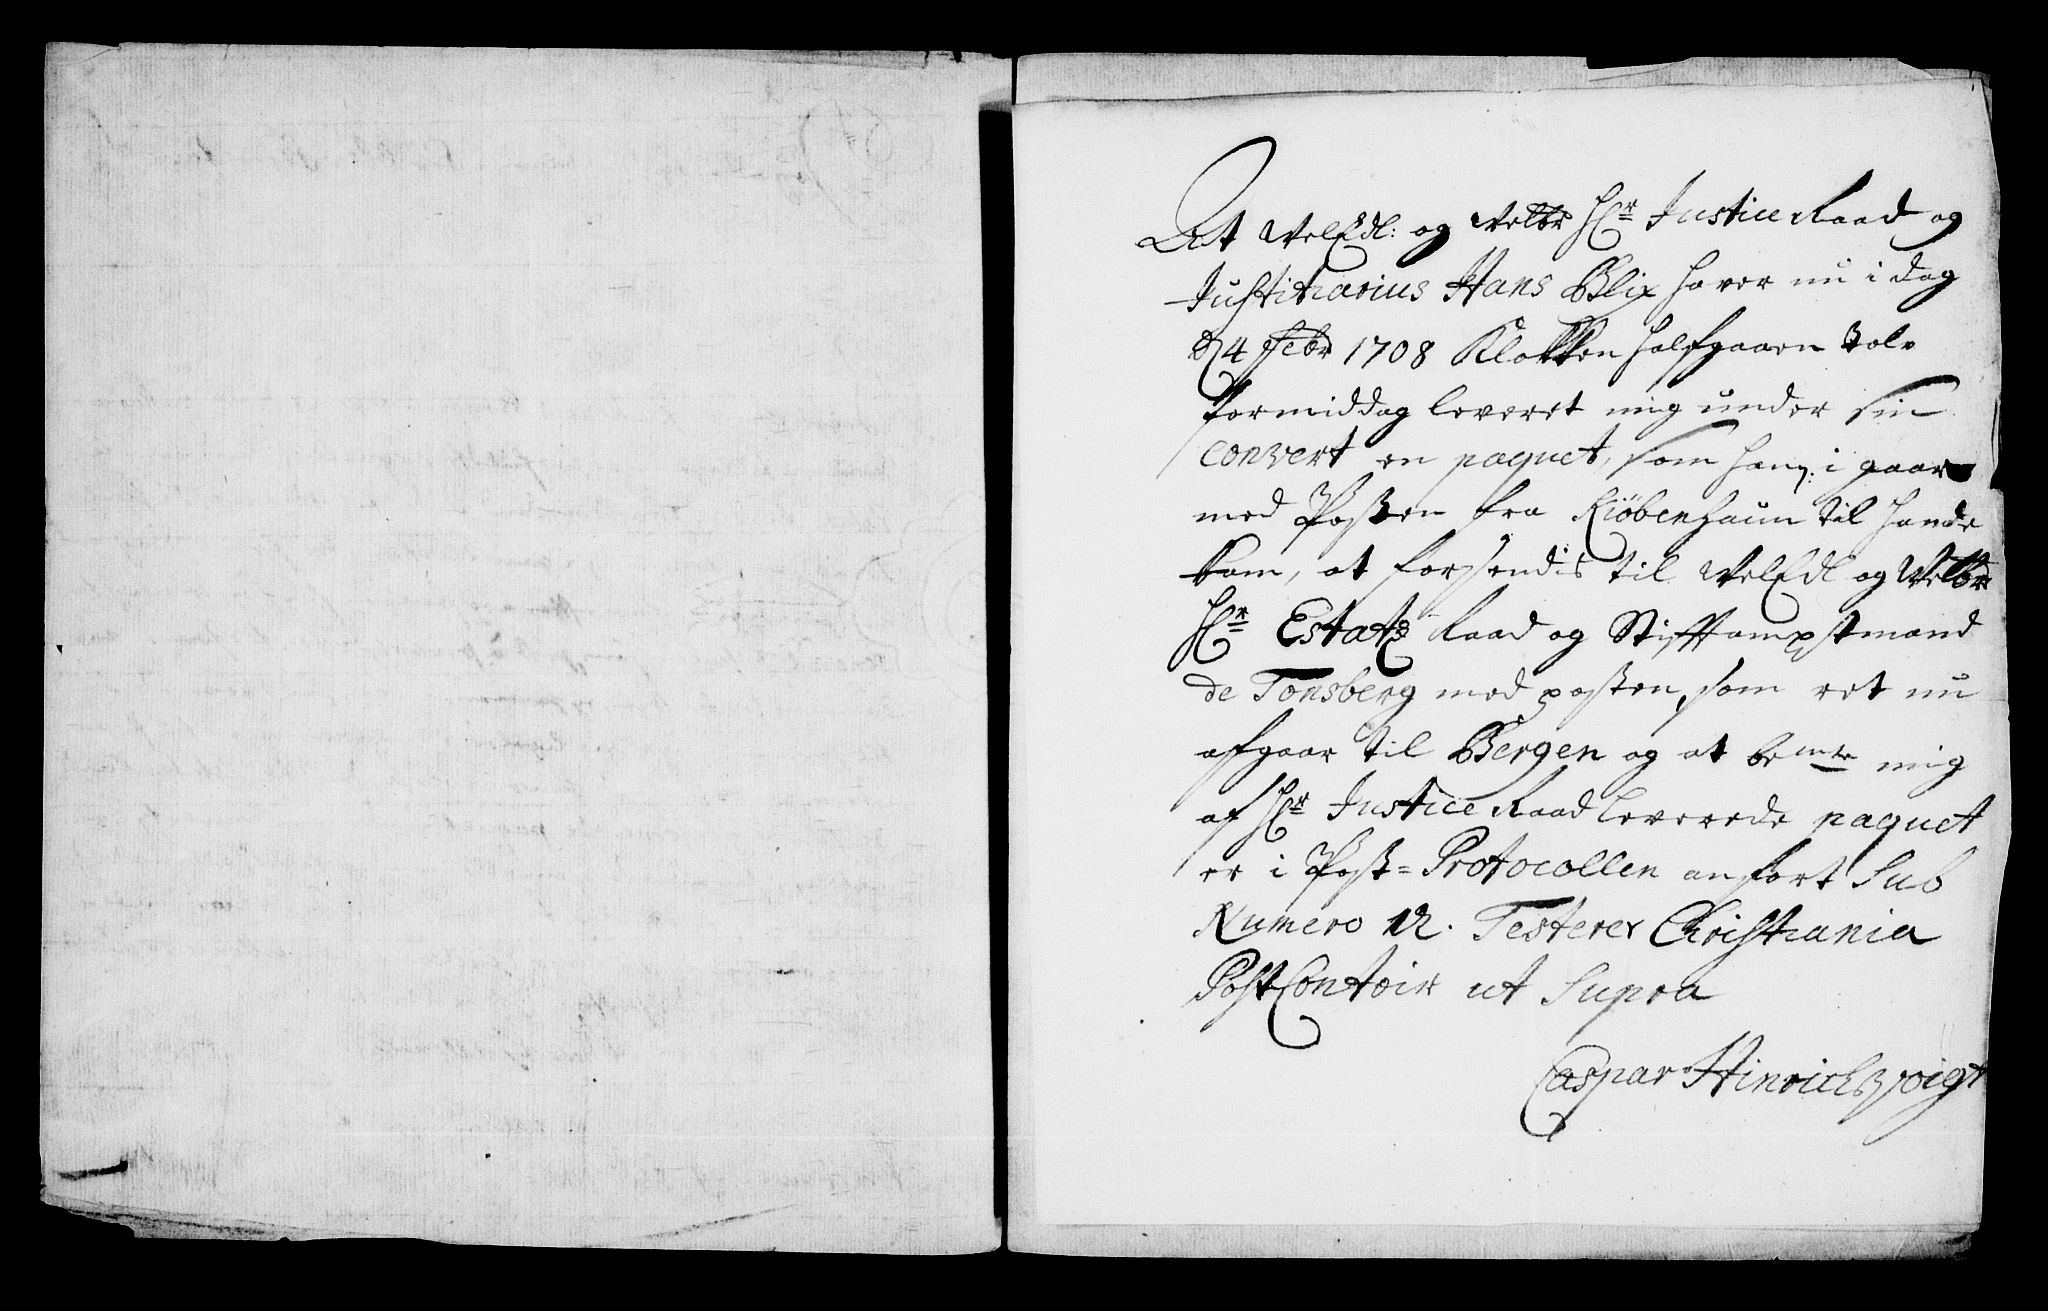 At WelEdl: og Welbr Hr Justice Raad og
Justitiarius Hans Blix hafver nu i dag
d 4 Febr 1708 Klokken halfgaaen tolv
formiddag leveret mig under sin
convert en paquet, som ham i gaar
med Posten fra Kiöbenhaun til hande
kom, at forsendis til WelEdl og Welbr
Hr Estatz Raad og Stifftamptmand
de Tonsberg med posten, som ret nu
afgaar til Bergen og at bemte mig
af Hr Justice Raad leverede paquet
er i Post-Protocollen anfört Sub
Numero 12. Testerer Christiania
PostContoir ut Supra
Caspar Hinrichs Voigt